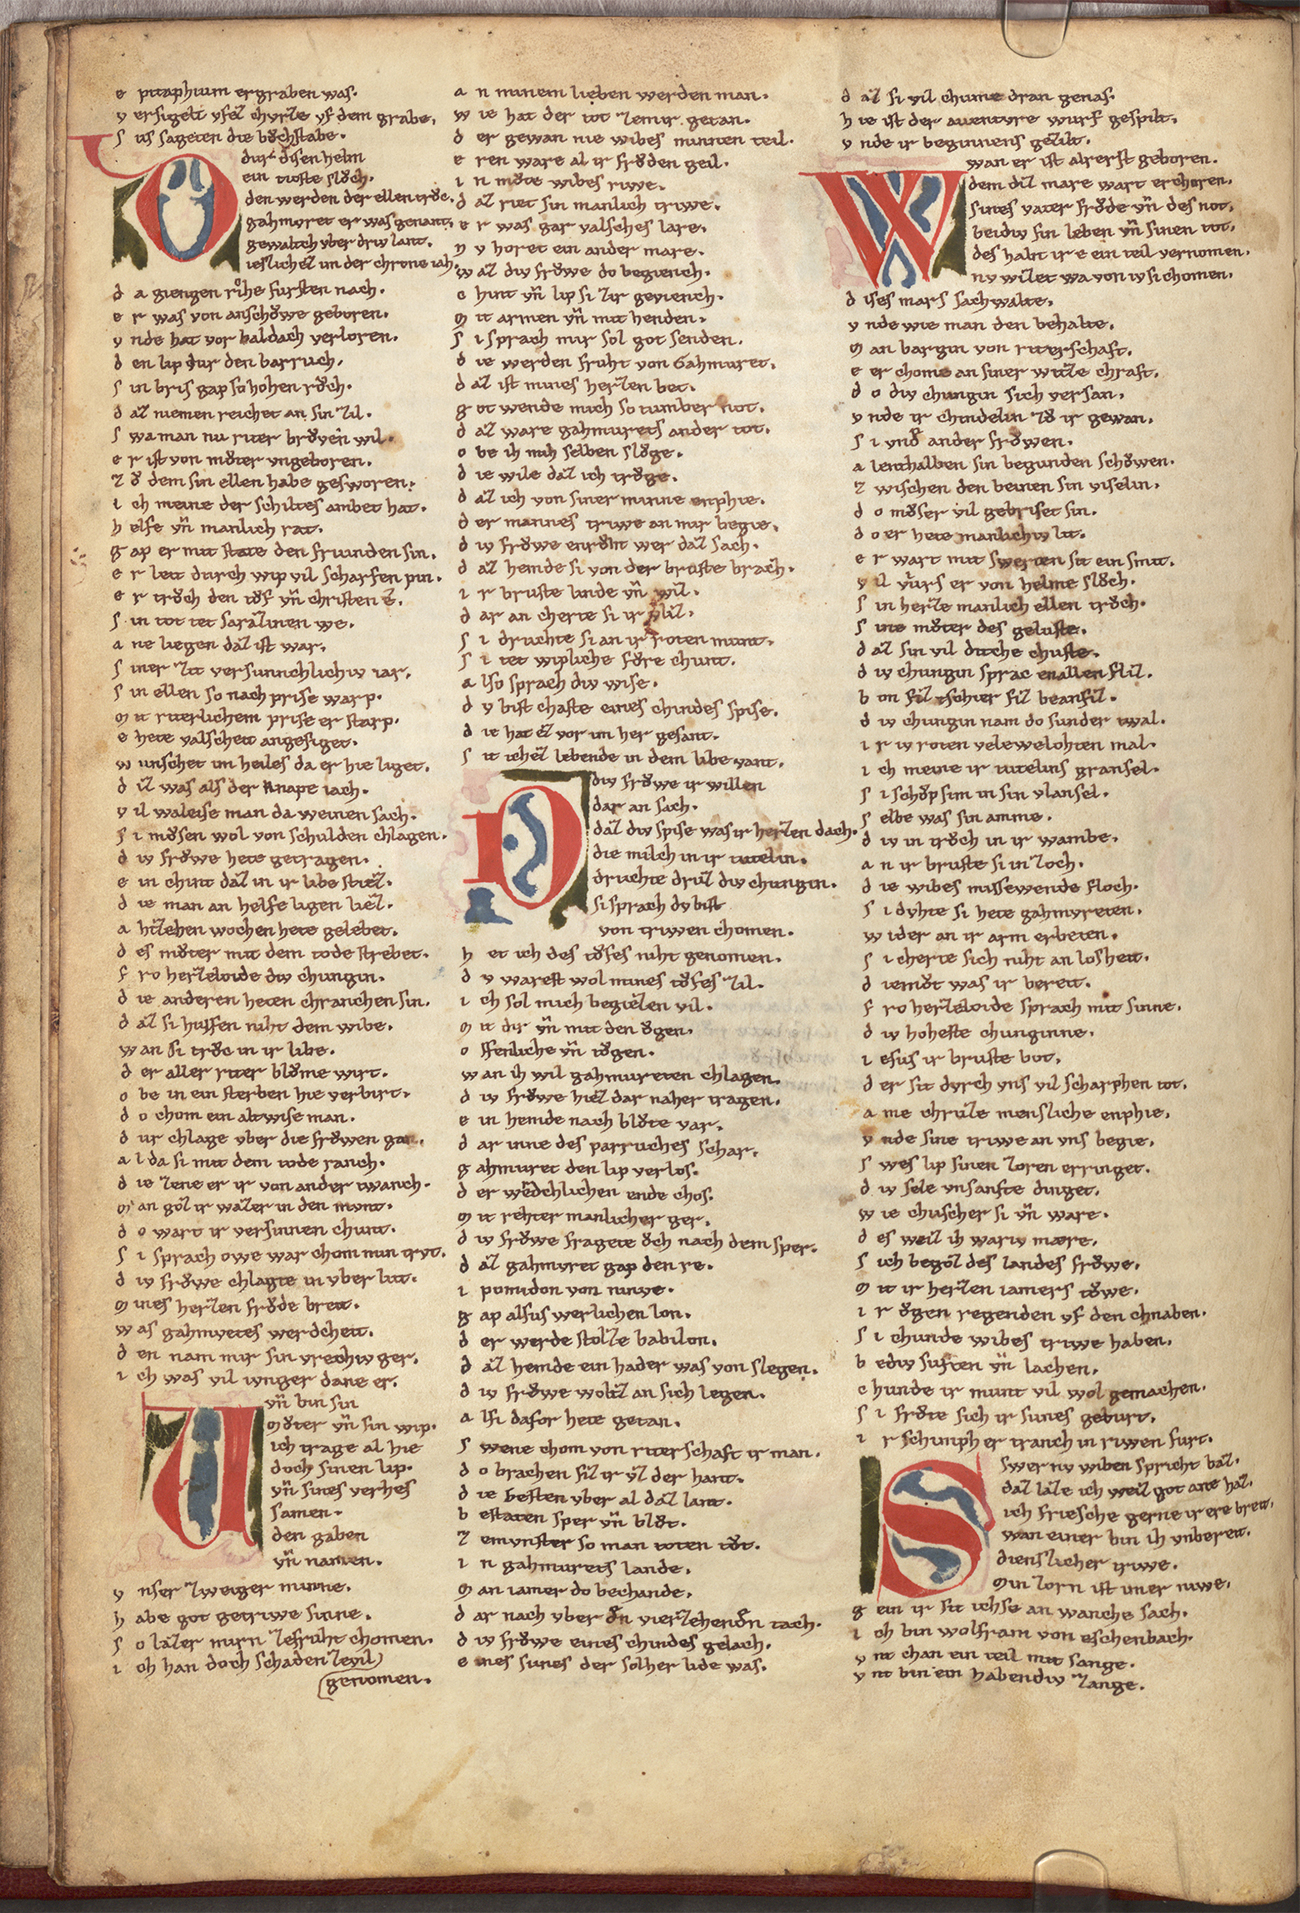 e pitaphium ergraben was.
v ersigelt vfez chruze vf dem grabe.
s us sageten die bůchstabe.
Dur disen helm
ein tioste slůch.
den werden der ellen trůc.
gahmuret er was genant.
gewaltch vber driv lant.
ieslichez im der chrone iah.
d a giengen rihe fursten nach.
e r was von anschowe geboren.
v nde hat vor baldach verloren.
d en lip dur den barruch.
s in bris gap so hohen roch.
d az niemen reichet an sin zil.
s wa man nu riter brůven wil.
e r ist von můter vngeboren.
z ů dem sin ellen habe gesworen.
i ch meine der schiltes ambet hat.
h elfe vn̄ manlich rat.
g ap er mit stæte den friunden sin.
e r leit durch wip vil scharfen pin.
e r trůch den tŏf vn̄ christen e.
s in tot tet sarazinen we.
a ne liegen daz ist war.
s iner zit versunnchlichiv iar.
s in ellen so nach prise warp.
m it riterlichem prise er starp.
e hete valscheit angesiget.
w unschet im heiles da er hie liget.
d iz was als der knape iach.
v il waleise man da weinen sach.
s i můsen wol von schulden chlagen.
d iv frŏwe hete getragen.
e in chint daz in ir libe stiez.
d ie man an helfe ligen liez.
a htzehen wochen hete gelebet.
d es můter mit dem tode strebet.
f ro herzeloide div chungin.
d ie anderen heten chranchen sin.
d az si hulfen niht dem wibe.
w an si trůc in ir libe.
d er aller riter blůme wirt.
o be in ein sterben hie verbirt.
d o chom ein altwise man.
d ur chlage vber die frŏwen gan.
a l da si mit dem tode ranch.
d ie zene er ir von ander twanch.
m an gŏz ir wazer in den munt.
d o wart ir versinnen chunt.
s i sprach owe war chom min tryt.
d iv frŏwe chlagte in vber lut.
m ines herzen frŏde breit.
w as gahmvretes werdcheit.
d en nam mir sin vrechiv ger.
i ch was vil ivnger dane er.
Vn̄ bin sin
můter vn̄ sin wip.
ich trage al hie
doch sinen lip.
vn̄ sines verhes
samen.
den gaben
vn̄ namen.
v nser zweiger minne.
h abe got getriwe sinne.
s o lazer mirn zefruht chomen.
i ch han doch schaden zevil
genomen.
a n minem lieben werden man.
w ie hat der tot zemir getan.
d er gewan nie wibes minnen teil.
e ren ware al ir frŏden geil.
i n můte wibes riwe.
d az riet sin manlich triwe.
e r was gar valsches lare.
n v horet ein ander mare.
w az div frŏwe do begiench.
c hint vn̄ lip si zir geviench.
m it armen vn̄ mit henden.
s i sprach mir sol got senden.
d ie werden fruht von Gahmuret.
d az ist mines herzen bet.
g ot wende mich so tumber not.
d az ware gahmurets ander tot.
o be ih mih selben slŏge.
d ie wile daz ich trŏge.
d az ich von siner minne enphie.
d er mannes triwe an mir begie.
d iv frŏwe enrŏht wer daz sach.
d az hemde si von der bruste brach.
i r bruste linde vn̄ wiz.
d ar an cherte si ir vliz.
s i druchte si an ir roten munt.
s i tet wipliche fŏre chunt.
a lso sprach div wise.
d v bist chaste eines chindes spise.
d ie hat ez vor im her gesant.
s it ichez lebende in dem libe vant.
Div frŏwe ir willen
dar an sach.
daz div spise was ir herzen dach.
die milch in ir tutelin.
druchte druz div chungin.
si sprach dv bist
von triwen chomen.
h et ich des tŏfes niht genomen.
d v warest wol mines tŏfes zil.
i ch sol mich begiezen vil.
m it dir vn̄ mit den ŏgen.
o ffenliche vn̄ tŏgen.
w an ih wil gahmureten chlagen.
d iv frŏwe hiez dar naher tragen.
e in hemde nach blůte var.
d ar inne des parruches schar.
g ahmuret den lip verlos.
d er wedchlichen ende chos.
m it rehter manlicher ger.
d iv frŏwe fragete ŏch nach dem sper.
d az gahmvret gap den re.
i pomidon von ninive.
g ap alsus werlichen lon.
d er werde stolze babilon.
d az hemde ein hader was von slegen.
d iv frŏwe woltez an sich legen.
a lsi dafor hete getan.
s wene chom von riterschaft ir man.
d o brachen siz ir vz der hant.
d ie besten vber al daz lant.
b estaten sper vn̄ blůt.
z emvnster so man toten tůt.
i n gahmurets lande.
m an iamer do bechande.
d ar nach vber dn̄ vierzehendn̄ tach.
d iv frŏwe eines chindes gelach.
e ines sunes der solher lide was.
d az si vil chume dran genas.
h ie ist der aventvre wurf gespilt.
v nde ir beginnens gezilt.
Wan er ist alrerst geboren.
dem diz mare wart erchoren.
sines vater frŏde vn̄ des not.
beidiv sin leben vn̄ sinen tot.
des habt ir e ein teil vernomen.
nv wizet wa von iv si chomen.
d ises mars sachwalte.
v nde wie man den behalte.
m an bargin von riterschaft.
e er chome an siner witze chraft.
d o div chungin sich versan.
v nde ir chindelin zů ir gewan.
s i vnd ander frŏwen.
a lenthalben sin begunden schŏwen.
z wischen den beinen sin viselin.
d o můser vil gebriset sin.
d o er hete manlichiv lit.
e r wart mit swerten sit ein smit.
v il vivrs er von helme slůch.
s in herze manlich ellen trůch.
s ine můter des geluste.
d az sin vil dicche chuste.
d iv chungin sprac enallen fliz.
b on fiz tschier fiz beanfiz.
d iv chungin nam do sunder twal.
i r iv roten velewelohten mal.
i ch meine ir tutelins gransel.
s i schŏp sim in sin vlansel.
s elbe was sin amme.
d iv in trůch in ir wambe.
a n ir bruste si in zoch.
d ie wibes missewende floch.
s i dvhte si hete gahmvreten.
w ider an ir arm erbeten.
s i cherte sich niht an losheit.
d iemůt was ir bereit.
f ro herzeloide sprach mit sinne.
d iv hoheste chunginne.
i esus ir bruste bot.
d er sit dvrch vns vil scharphen tot.
a me chruze mensliche enphie.
v nde sine triwe an vns begie.
s wes lip sinen zoren erringet.
d iv sele vnsanfte dinget.
w ie chuscher si vn̄ ware.
d es weiz ih wariv mære.
s ich begŏz des landes frŏwe.
m it ir herzen iamers tŏwe.
i r ŏgen regenden vf den chnaben.
s i chunde wibes triwe haben.
b ediv suften vn̄ lachen.
c hunde ir munt vil wol gemachen.
s i frŏte sich ir sunes geburt.
i r schimph er tranch in riwen furt.
Swer nv wiben spricht baz.
daz laze ich weiz got ane haz.
ich friesche gerne ir ere breit.
wan einer bin ih vnbereit.
dienslicher triwe.
Min zorn ist imer niwe.
g ein ir sit ichse an wanche sach.
i ch bin wolfram von eschenbach.
v nt chan ein teil mit sange.
v nt bin ein habendiv zange.